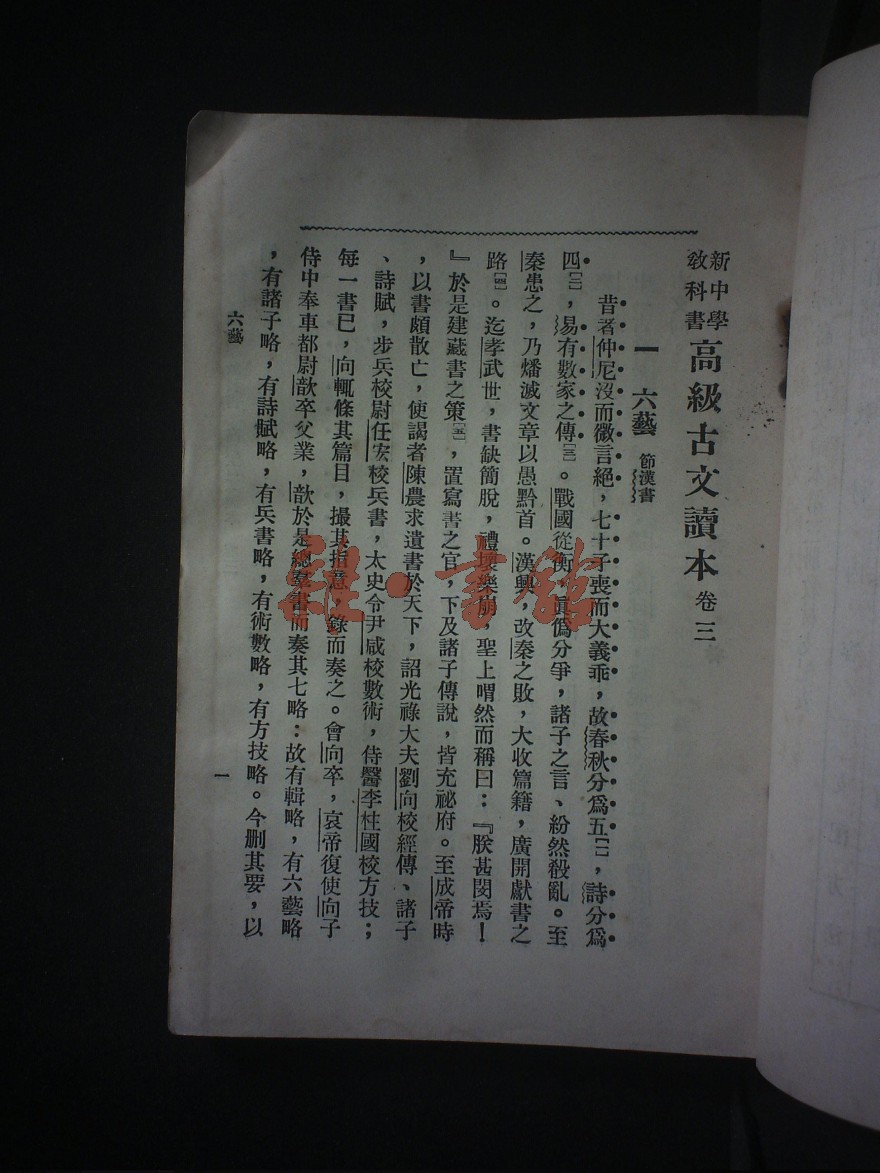 新中學教科書 高級古文讀本 卷三
一 六藝 節漢書
昔者仲尼沒而微言絕，七十子喪而大義乖，故春秋分爲五〔一〕，詩分爲
四〔二〕，易有數家之傳〔三〕。戰國從衡，眞僞分爭，諸子之言、紛然殽亂。至
秦患之，乃燔滅文章以愚黔首。漢興，改秦之敗，大收篇籍，廣開獻書之
路〔四〕。迄孝武世，書缺簡脫，禮壞樂崩，聖上喟然而稱曰：『朕甚閔焉！
』於是建藏書之策〔五〕，置寫書之官，下及諸子傳說，皆充祕府。至成帝時
，以書頗散亡，使謁者陳農求遺書於天下，詔光祿大夫劉向校經傳、諸子
、詩賦，步兵校尉任宏校兵書，太史令尹咸校數術，侍醫李柱國校方技；
每一書已，向輒條其篇目，撮其指意，錄而奏之。會向卒，哀帝復使向子
侍中奉車都尉歆卒父業，歆於是總羣書而奏其七略：故有輯略，有六藝略
，有諸子略，有詩賦略，有兵書略，有術數略，有方技略。今刪其要，以
六藝
一
雜·書館